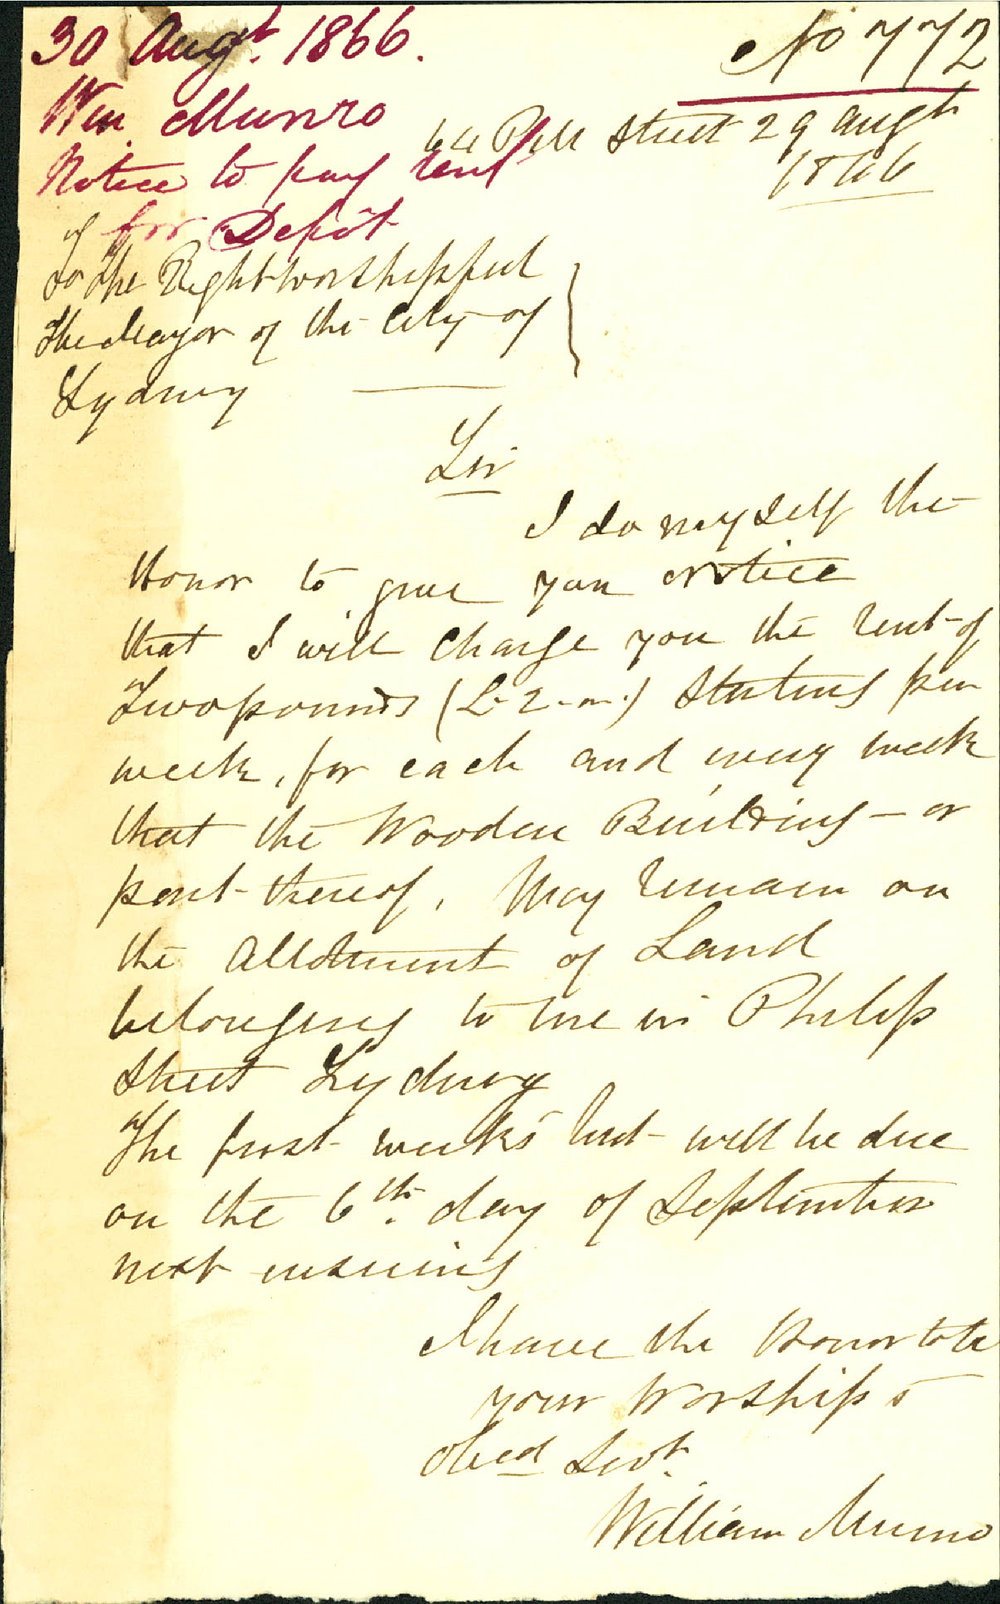 30 Augt. 1866.
No 772
Wm. Munro
Notice to pay rent
for Depôt
64 Pitt Street 29 augt
1866
To The Right Worshipful
The Mayor of the City of
Sydney
Sir
I do myself the
Honor to give you Notice
that I will Charge you the rent of
Two pounds (L-2-"-".) Sterling per
week, for each and every week
that the Wooden Building - or
part thereof, May remain on
the allotment of Land
belonging to me in Philip
Street Sydney
The first weeks rent will be due
on the 6th. day of September
next ensuing
I have the Honor to be
your Worship's
Obed Servt.
William Munro